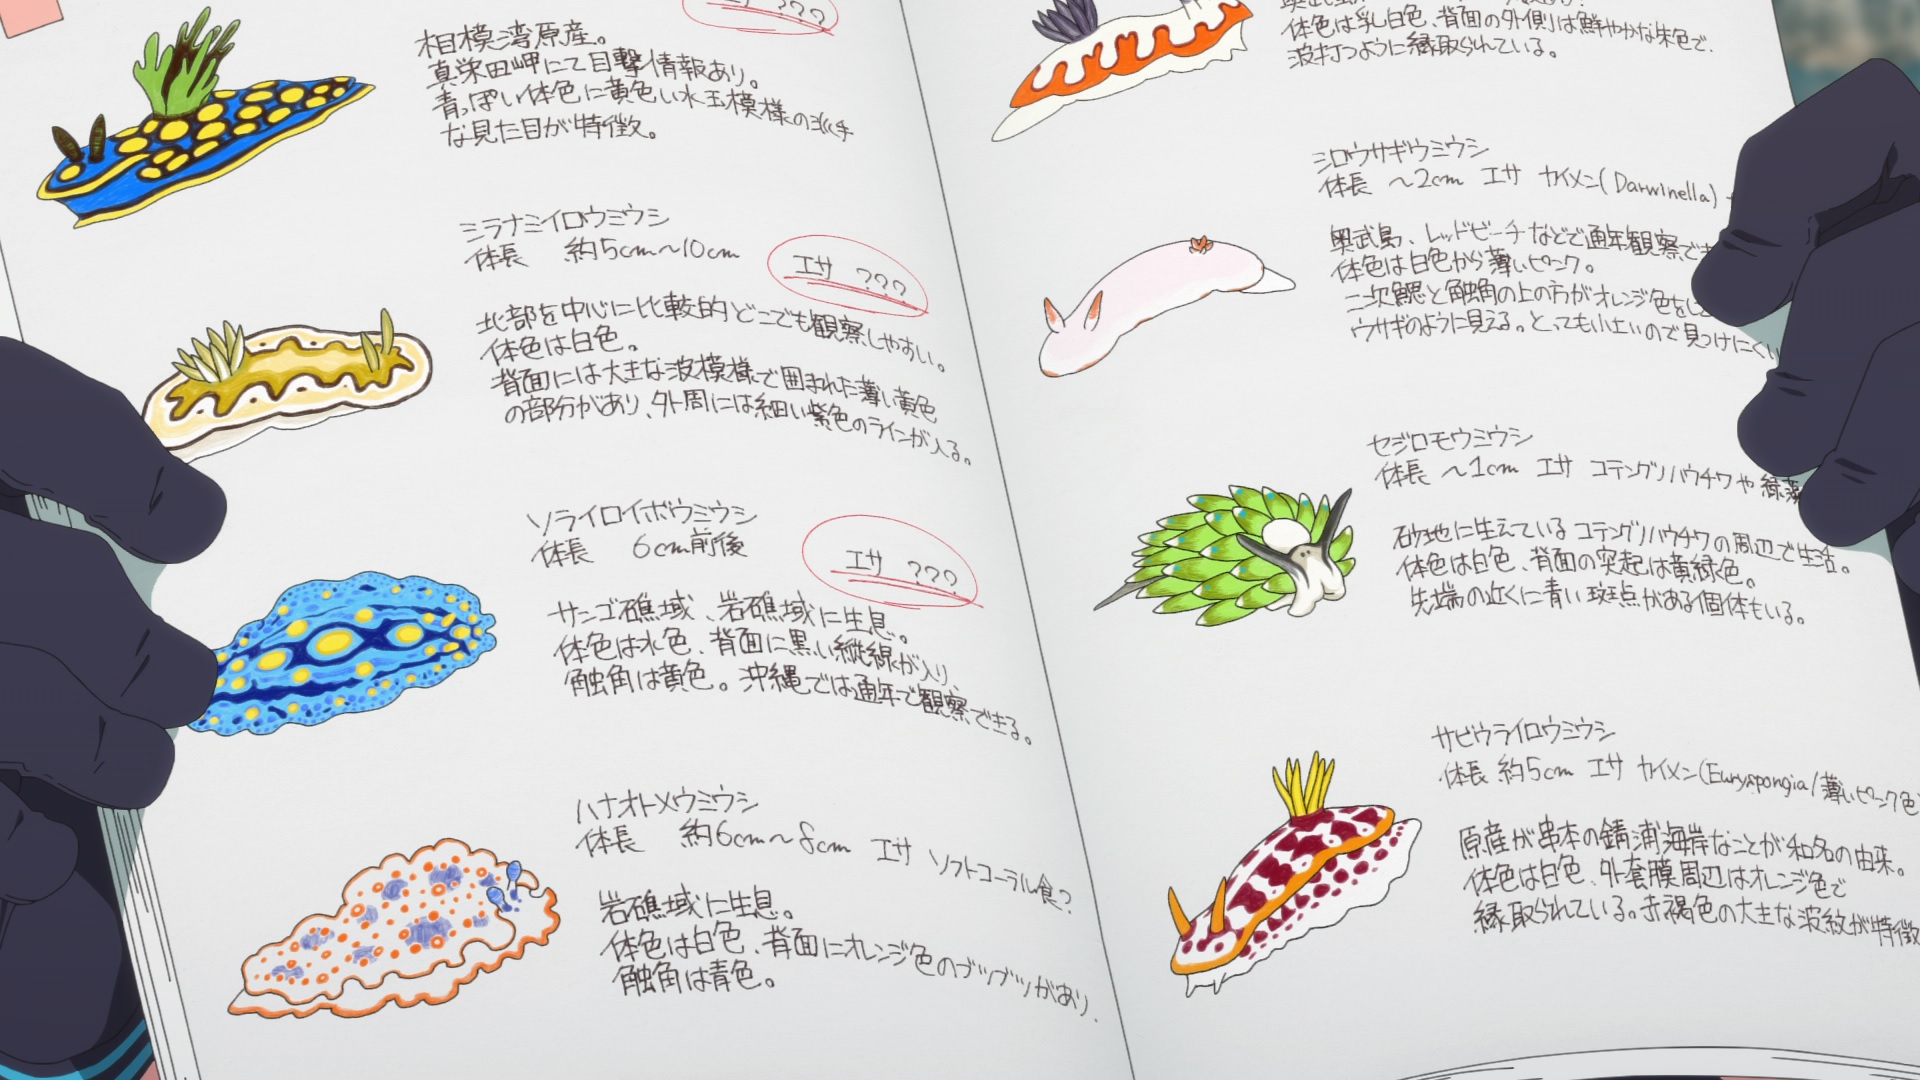 エサ ???
相模湾原産。
真栄田岬にて目撃情報あり。
青っぽい体色に黄色い水玉模様の派手
な見た目が特徴。
ミラナミイロウミウシ
体長 約5cm~10cm
エサ ???
北部を中心に比較的どこでも観察しやすい。
体色は白色。
背面には大きな波模様で囲まれた薄い黄色
の部分があり、外周には細い紫色のラインが入る。
ソライロイボウミウシ
体長 6cm前後
エサ ???
サンゴ礁域、岩礁域に生息。
体色は水色、背面に黒い縦線が入り、
触角は黄色。沖縄では通年で観察できる。
ハナオトメウミウシ
体長 約6cm~8cm エサ ソフトコーラル食?
岩礁域に生息。
体色は白色、背面にオレンジ色のブツブツがあり、
触角は青色。
体色は乳白色、背面の外側は鮮やかな朱色で、
波打つように縁取られている。
シロウサギウミウシ
体長 ~2cm エサ カイメン(Darwinella)
奥武島、レッドビーチなどで通年観察でき
体色は白色から薄いピンク。
二次鰓と触角の上の方がオレンジ色をし
ウサギのように見える。とっても小さいので見つけにくい
セジロモウミウシ
体長 ~1cm エサ コテングノハウチワや緑藻
砂地に生えているコテングノハウチワの周辺で生活。
体色は白色、背面の突起は黄緑色。
先端の近くに青い斑点がある個体もいる。
サビウライロウミウシ
体長 約5cm エサ カイメン(Euryspongia/薄いピンク色
原産が串本の錆浦海岸なことが和名の由来。
体色は白色、外套膜周辺はオレンジ色で
縁取られている。赤褐色の大きな波紋が特徴